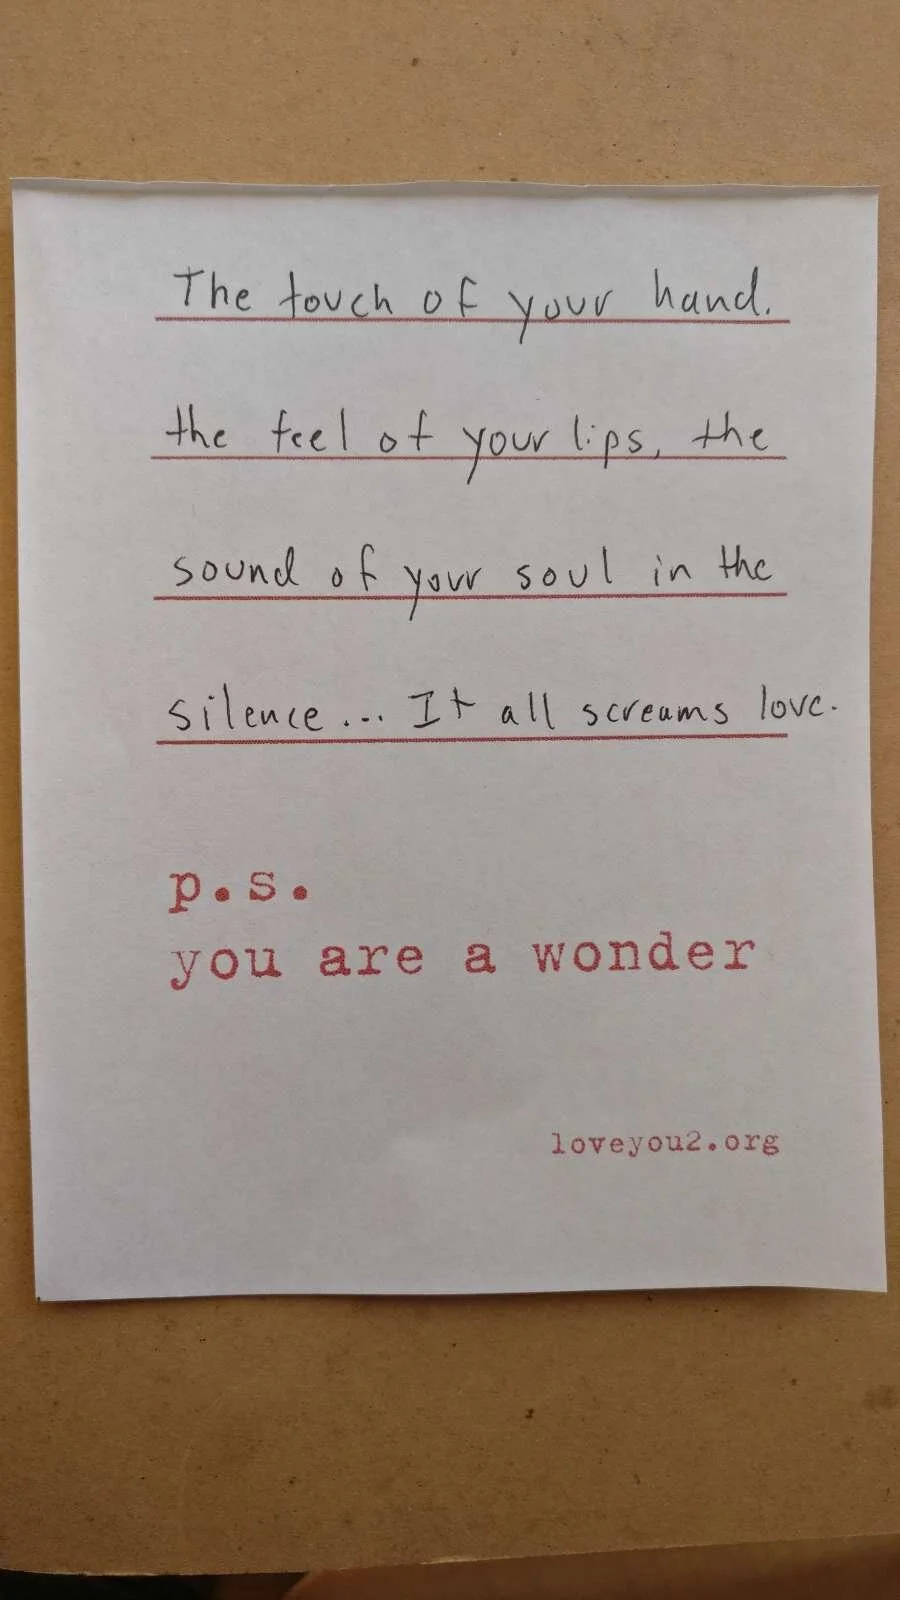 The touch of your hand.
the feel of your lips, the
sound of your soul in the
silence... It all screams love.
p.s.
you are a wonder
loveyou2.org